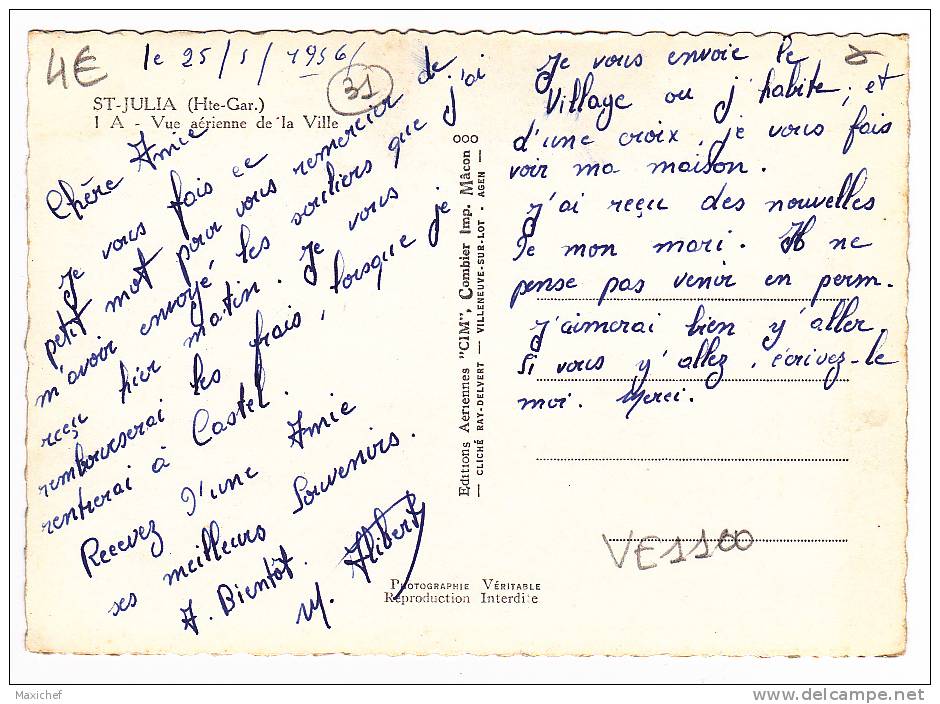 4€
le 25/5/1956
31
ST-JULIA (Hte-Gar.)
1 A - Vue aérienne de la Ville
Chère Amie
Je vous fais ce
petit mot pour vous remercier de
m'avoir envoyé les souliers que j'ai
reçu hier matin. Je vous
rembourserai les frais, lorsque je
rentrerai à Castel.
Recevez d'une Amie
ses meilleurs Souvenirs.
A. Bientôt.
M. Alibert
Editions Aeriennes "CIM", Combier Imp. Mâcon ooo
— CLICHÉ RAY-DELVERT — VILLENEUVE-SUR-LOT - AGEN —
Je vous envoie le
Village ou j'habite, et
d'une croix, je vous fais
voir ma maison.
J'ai reçu des nouvelles
de mon mari. Il ne
pense pas venir en perm.
J'aimerai bien y'aller
Si vous y'allez, écrivez-le
moi. Merci.
VE1100
PHOTOGRAPHIE VÉRITABLE
Reproduction Interdite
Maxichef
http://www.delcampe.net